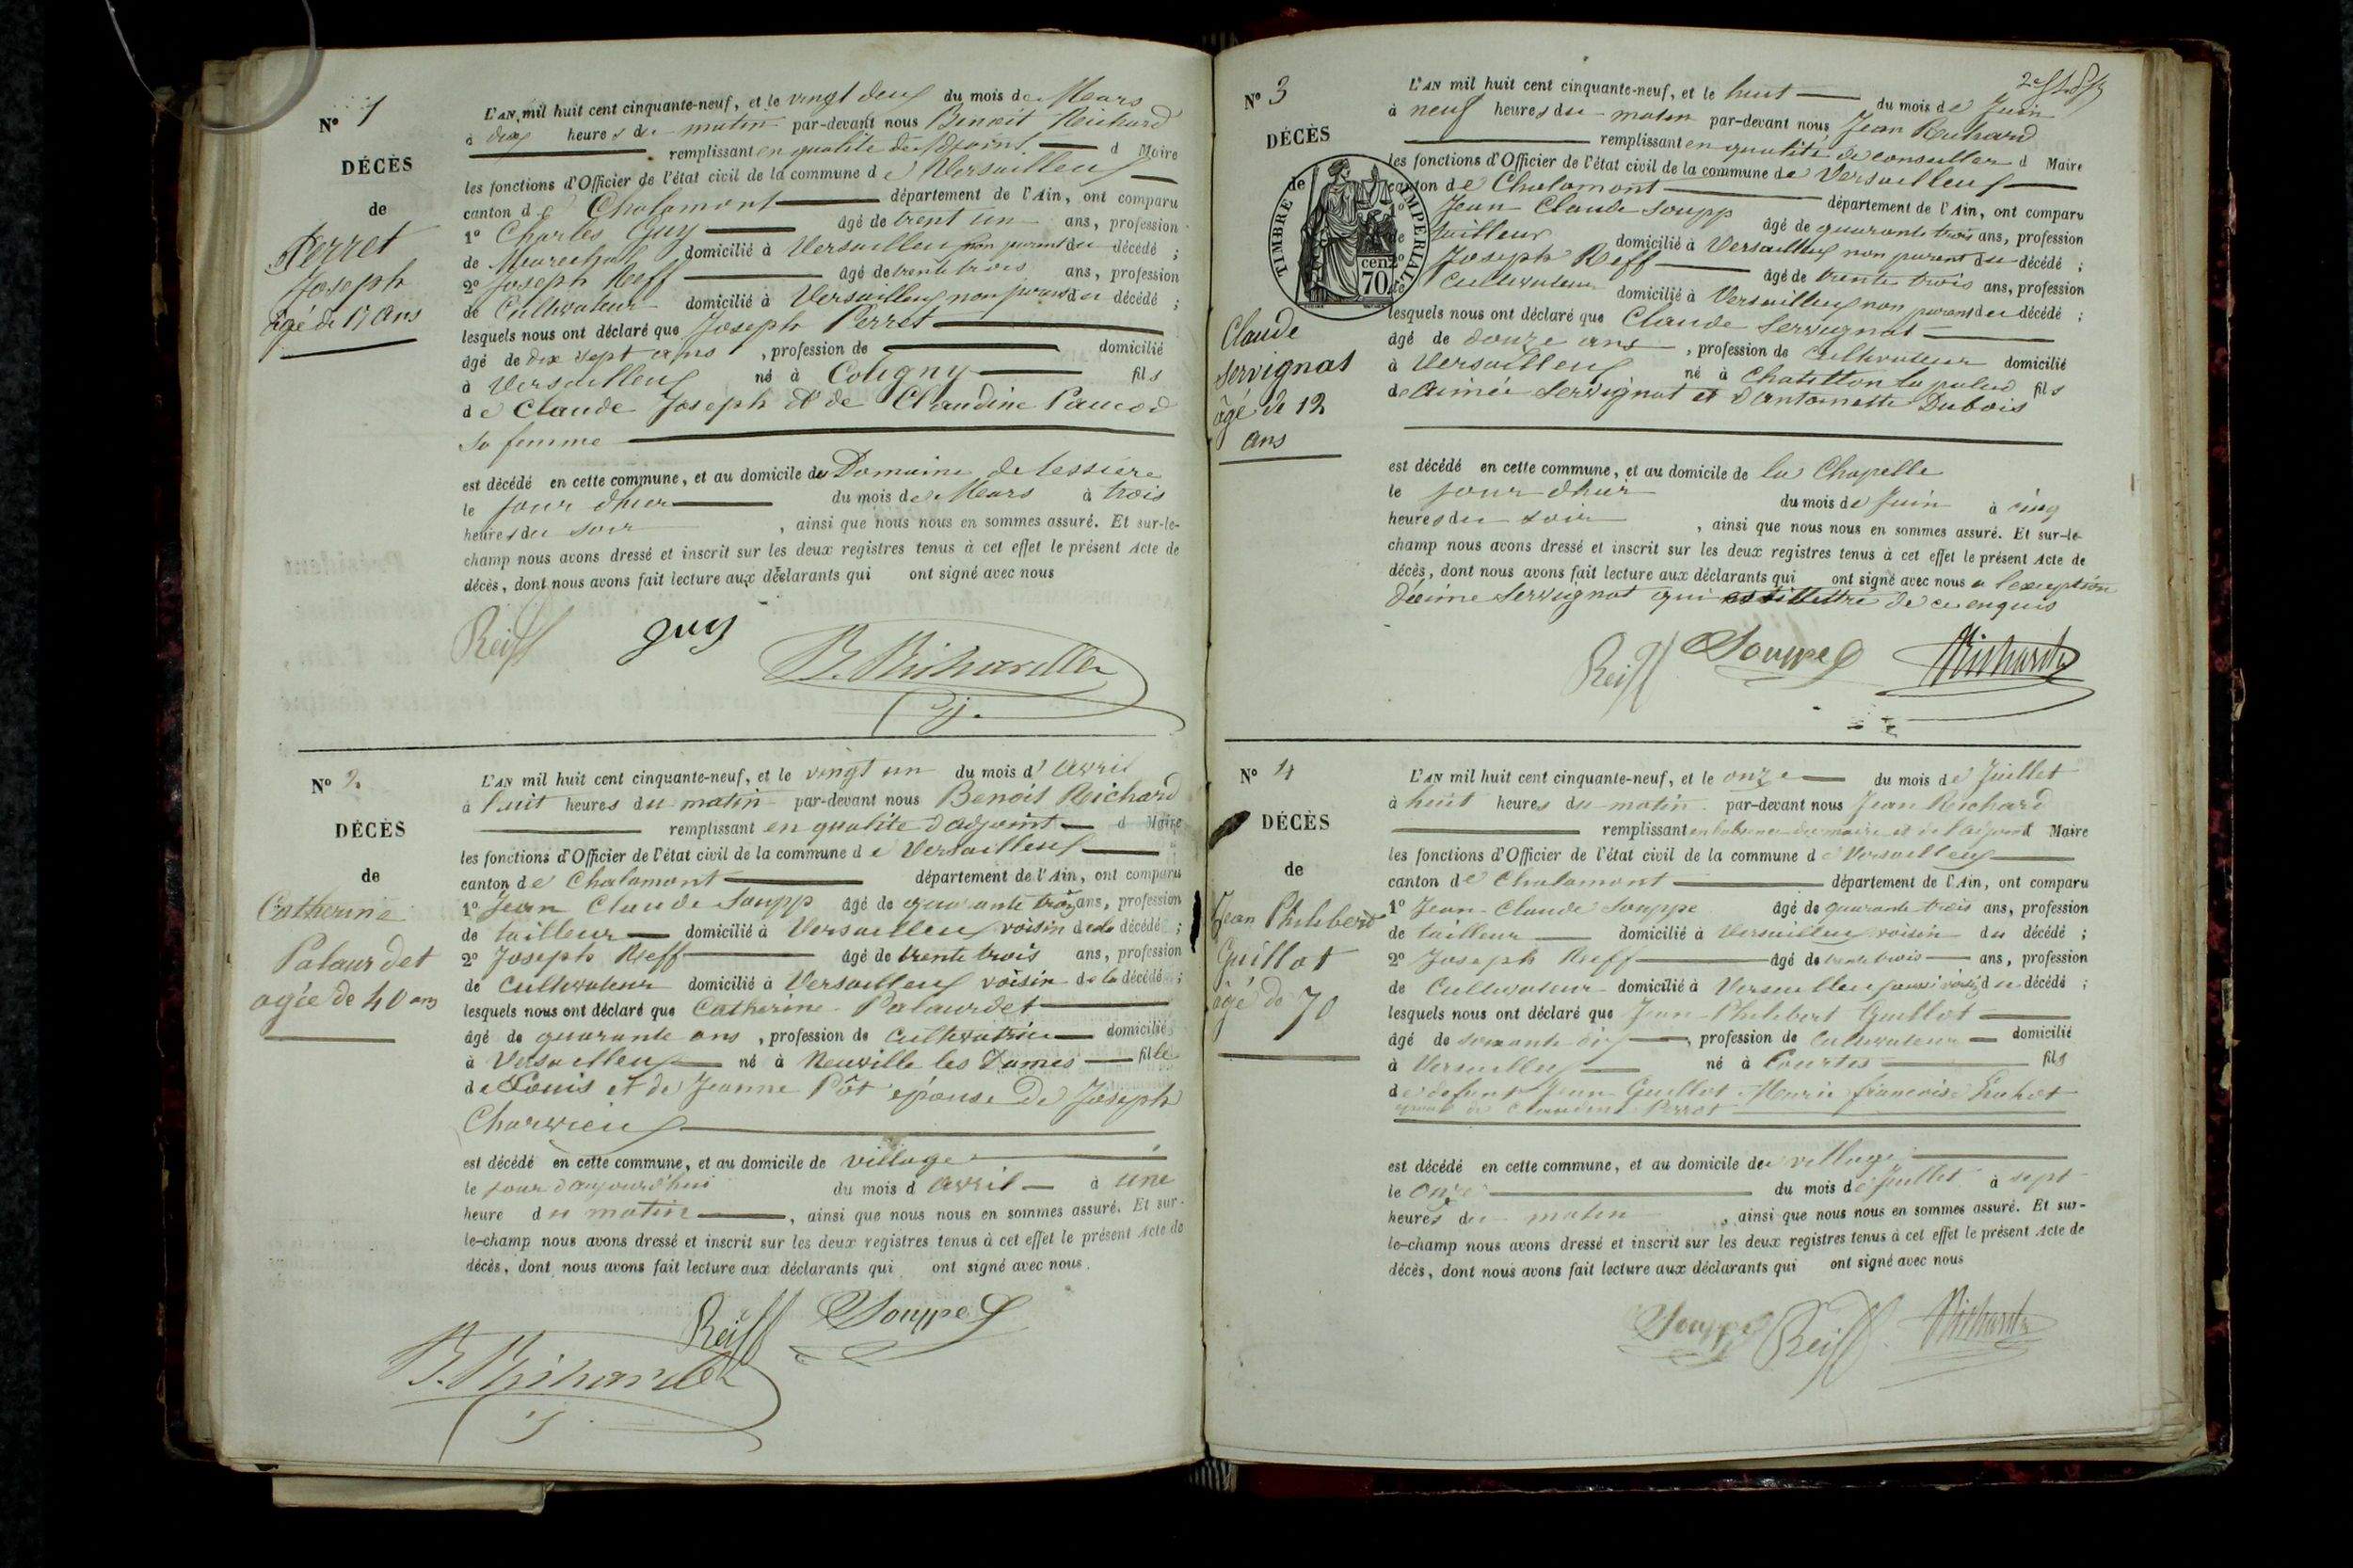 N° 1
DÉCÈS
de
Perret
Joseph
âgé de 17 ans
L'AN mil huit cent cinquante-neuf, et le vingt deux du mois de Mars
à dix heures du matin par-devant nous Benoit Richard
remplissant en qualité d'adjoint d Maire
les fonctions d'Officier de l'état civil de la commune de Versailleux
canton de Chalamont département de l'Ain, ont comparu
1° Charles Guy âgé de trent un ans, profession
de Marechal domicilié à Versailleux non parent du décédé ;
2° Joseph Reff âgé de trente trois ans, profession
de Cultivateur domicilié à Versailleux non parent du décédé ;
lesquels nous ont déclaré que Joseph Perret
âgé de dix sept ans , profession de domicilié
à Versailleux né à Coligny fils
de Claude Joseph et de Claudine Paucod
sa femme
est décédé en cette commune, et au domicile du Domaine de
le jour dhier du mois de Mars à trois
heures du soir , ainsi que nous nous en sommes assuré. Et sur-le-
champ nous avons dressé et inscrit sur les deux registres tenus à cet effet le présent Acte de
décès, dont nous avons fait lecture aux déclarants qui ont signé avec nous
Reiff guy B. Richard
N° 2
DÉCÈS
de
Catherine
Palaurdet
agée de 40 ans
L'AN mil huit cent cinquante-neuf, et le vingt un du mois d'Avril
à huit heures du matin par-devant nous Benoit Richard
remplissant en qualité d'adjoint d Maire
les fonctions d'Officier de l'état civil de la commune de Versailleux
canton de Chalamont département de l'Ain, ont comparu
1° Jean Claude Soupp âgé de quarante trois ans, profession
de tailleur domicilié à Versailleux voisin de la décédé ;
2° Joseph Reff âgé de trente trois ans, profession
de Cultivateur domicilié à Versailleux voisin de la décédé ;
lesquels nous ont déclaré que Catherine Palaurdet
âgé de quarante ans , profession de Cultivatrice domicilié
à Versailleux né à Neuville les Dames fille
de Louis et de Jeanne Pôt épouse de Joseph
Charvieux
est décédé en cette commune, et au domicile de village
le jour d'aujourd'hui du mois d Avril à une
heure du matin , ainsi que nous nous en sommes assuré. Et sur-
le-champ nous avons dressé et inscrit sur les deux registres tenus à cet effet le présent Acte de
décès, dont nous avons fait lecture aux déclarants qui ont signé avec nous.
Reiff Souppe
B. Richard
N° 3
DÉCÈS
de
TIMBRE IMPERIAL
70 cen
Claude
Servignat
âgé de 12
ans
L'AN mil huit cent cinquante-neuf, et le huit du mois de Juin
à neuf heures du matin par-devant nous Jean Richard
remplissant en qualité de conseiller d Maire
les fonctions d'Officier de l'état civil de la commune de Versailleux
canton de Chalamont département de l'Ain, ont comparu
1° Jean Claude Soupp âgé de quarante trois ans, profession
de tailleur domicilié à Versailleux non parent du décédé ;
2° Joseph Reff âgé de trente trois ans, profession
de Cultivateur domicilié à Versailleux non parent du décédé ;
lesquels nous ont déclaré que Claude Servignat
âgé de douze ans , profession de Cultivateur domicilié
à Versailleux né à Chatillon la palud fils
de Aimée Servignat et d'Antoinette Dubois
est décédé en cette commune, et au domicile de la Chapelle
le jour dhier du mois de Juin à cinq
heures du soir , ainsi que nous nous en sommes assuré. Et sur-le-
champ nous avons dressé et inscrit sur les deux registres tenus à cet effet le présent Acte de
décès, dont nous avons fait lecture aux déclarants qui ont signé avec nous a l'exception
d'Aimé Servignat qui est illettré de ce enquis
Reiff Souppe Richard
N° 4
DÉCÈS
de
Jean Philibert
Guillot
âgé de 70
L'AN mil huit cent cinquante-neuf, et le onze du mois de Juillet
à huit heures du matin par-devant nous Jean Richard
remplissant en l'absence du maire et de l'adjoint d Maire
les fonctions d'Officier de l'état civil de la commune de Versailleux
canton de Chalamont département de l'Ain, ont comparu
1° Jean Claude Souppe âgé de quarante trois ans, profession
de tailleur domicilié à Versailleux voisin du décédé ;
2° Joseph Reff âgé de trente trois ans, profession
de Cultivateur domicilié à Versailleux aussi voisin du décédé ;
lesquels nous ont déclaré que Jean Philibert Guillot
âgé de soixante dix , profession de Cultivateur domicilié
à Versailleux né à Courtes fils
de defunt Jean Guillot Marie francoise
epoux de Claudine Perrot
est décédé en cette commune, et au domicile du village
le Onze du mois de Juillet à sept
heures du matin , ainsi que nous nous en sommes assuré. Et sur-
le-champ nous avons dressé et inscrit sur les deux registres tenus à cet effet le présent Acte de
décès, dont nous avons fait lecture aux déclarants qui ont signé avec nous
Souppe Reiff Richard